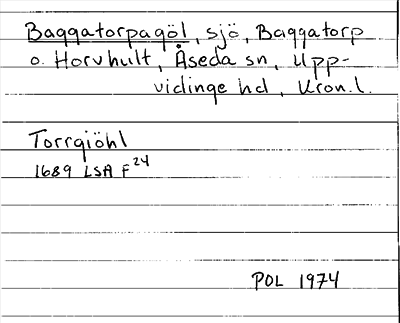 Baggatorpagöl, sjö, Baggatorp
o. Horvhult, Åseda sn, Upp-
vidinge hd, Kron.l.
Torrgiöhl
1689 LSA F24
POL 1974